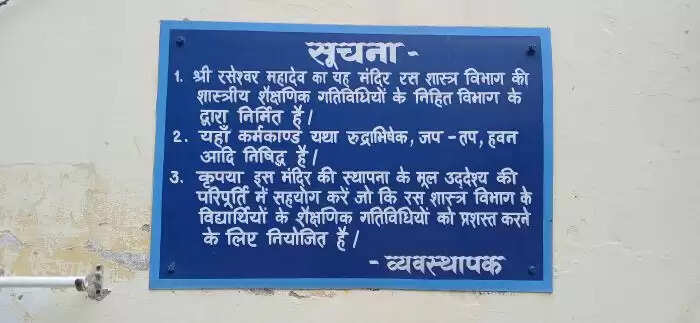 सूचना -
1. श्री रसेश्वर महादेव का यह मंदिर रस शास्त्र विभाग की
शास्त्रीय शैक्षणिक गतिविधियों के निहित विभाग के
द्वारा निर्मित है।
2. यहाँ कर्मकाण्ड यथा रुद्राभिषेक, जप -तप, हवन
आदि निषिद्ध है।
3. कृपया इस मंदिर की स्थापना के मूल उद्देश्य की
परिपूर्ति में सहयोग करें जो कि रस शास्त्र विभाग के
विद्यार्थियों के शैक्षणिक गतिविधियों को प्रशस्त करने
के लिए नियोजित है।
- व्यवस्थापक